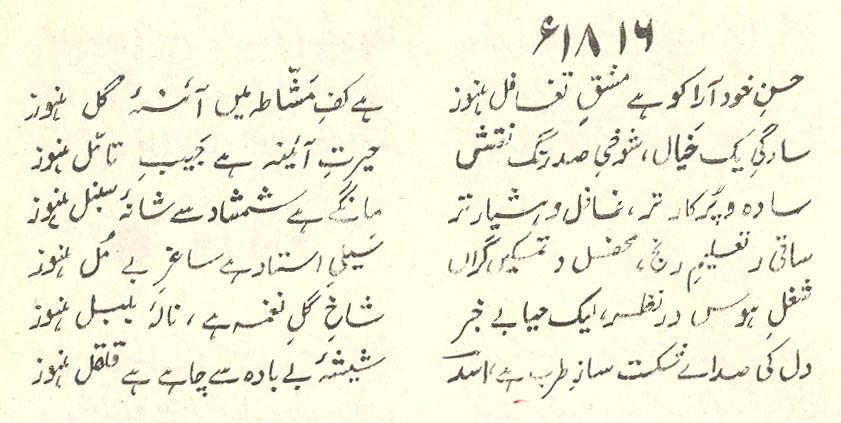 ۱۸۱۶ء
حسنِ خود آرا کو ہے مشقِ تغافل ہنوز ہے کفِ مشّاطہ میں آئنۂ گل ہنوز
سادگیِ یک خیال، شوخیِ صد رنگ نقش حیرتِ آئینہ ہے جَیبِ تامّل ہنوز
سادہ و پُرکار تر، غافل و ہشیار تر مانگے ہے شمشاد سے شانۂ سنبل ہنوز
ساقی و تعلیمِ رنج، محفل و تمکیں گراں سیلیِ استاد ہے ساغرِ بے مُل ہنوز
شغلِ ہوس در نظر، لیک حیا بے خبر شاخِ گلِ نغمہ ہے، نالۂ بلبل ہنوز
دل کی صدائے شکست سازِ طرب ہے، اسدؔ شیشۂ بے بادہ سے چاہے ہے قلقل ہنوز